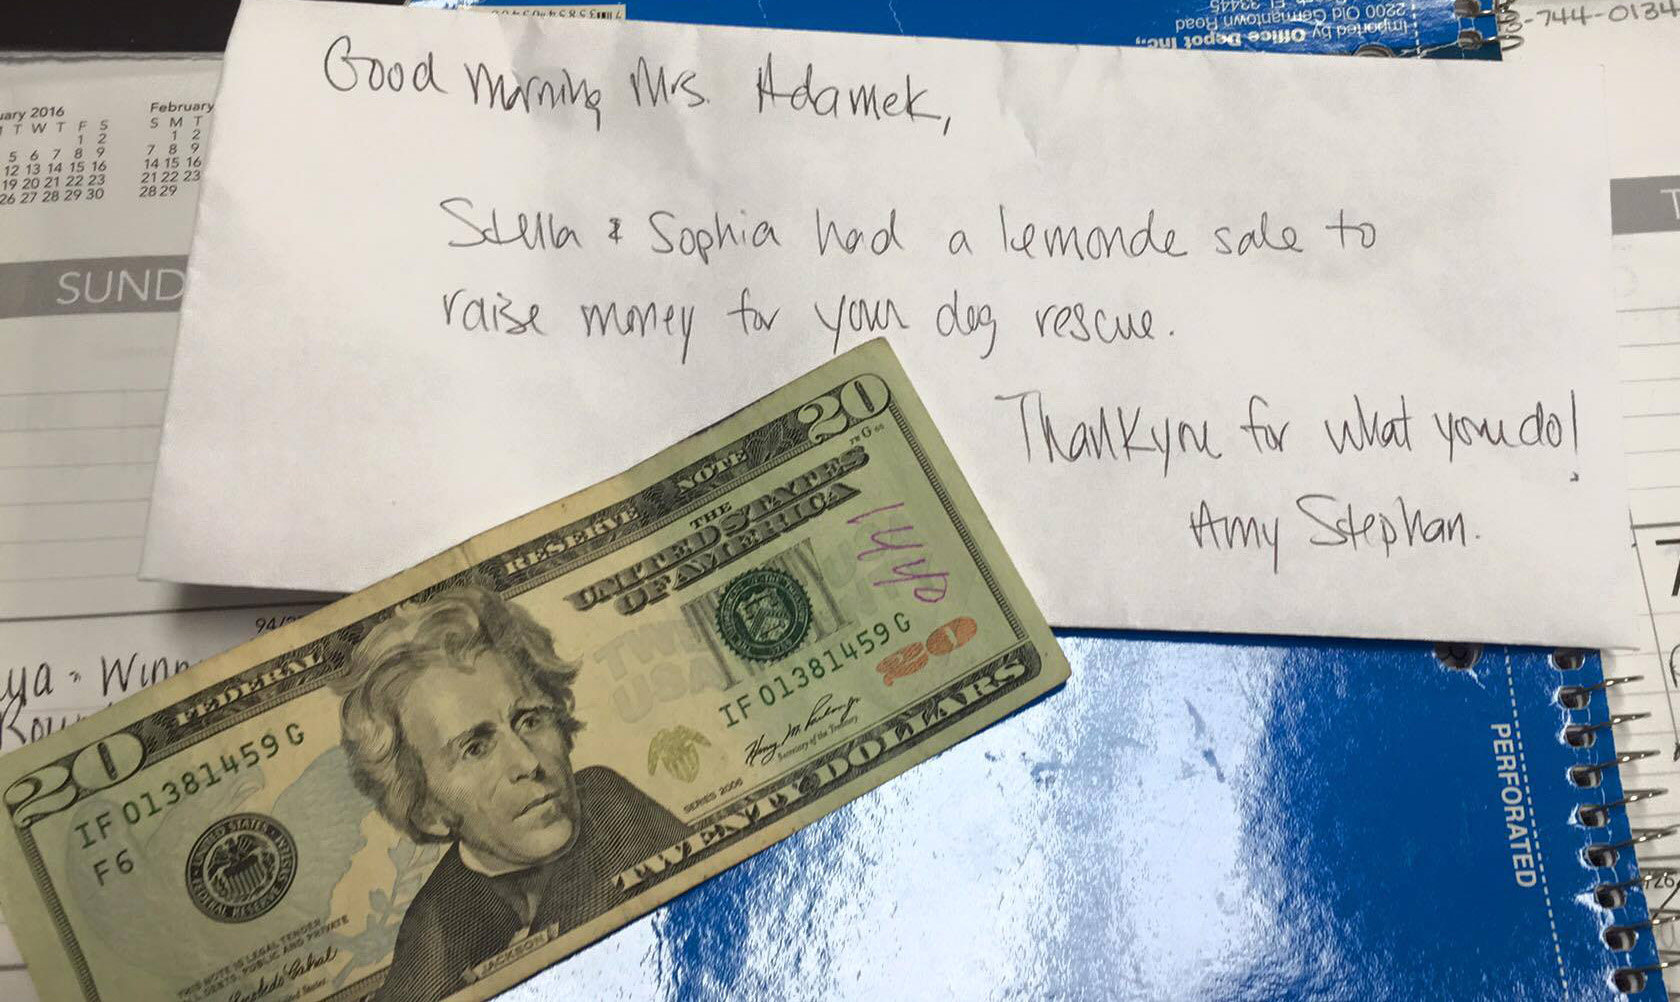 Imported by Office Depot Inc.,
2200 Old Germantown Road
FL 33445
3-744-0134
uary 2016
T W T F S
1 2
5 6 7 8 9
12 13 14 15 16
19 20 21 22 23
26 27 28 29 30
February
S M T
1 2
7 8 9
14 15 16
21 22 23
28 29
SUND
Good morning Mrs. Adamek,
Stella & Sophia had a lemonde sale to
raise money for your dog rescue.
Thankyou for what you do!
Amy Stephan.
94/2
ya - Winn
Rou
20
FEDERAL RESERVE NOTE
20
THE
UNITED STATES
OF AMERICA
1440
TWENTY
USA
IF 01381459 G
20
IF 01381459 G
F6
SERIES 2006
Secretary of the Treasury
TWENTY DOLLARS
JACKSON
THIS NOTE IS LEGAL TENDER
DEBTS, PUBLIC AND PRIVATE
PERFORATED